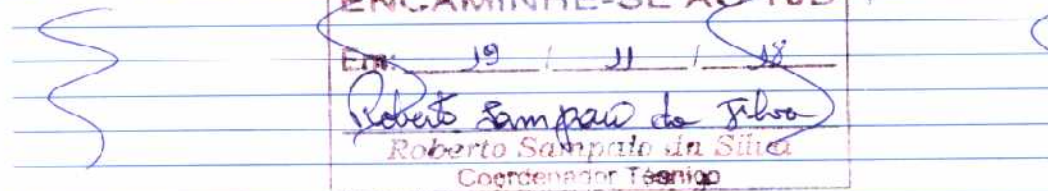 ENCAMINHE-SE AO
Em: 19 / 11 / 18
Roberto Sampaio da Silva
Roberto Sampaio da Silva
Coordenador Técnico